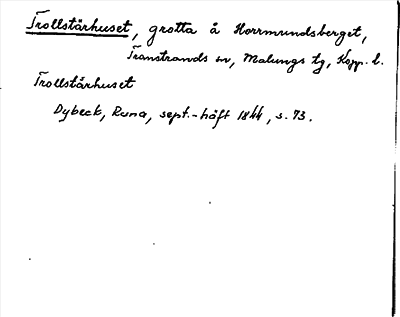 Trollstärhuset, grotta å Horrmundsberget,
Transtrands sn, Malungs tg, Kopp. l.
Trollstärhuset
Dybeck, Runa, sept.-häft 1844, s. 73.